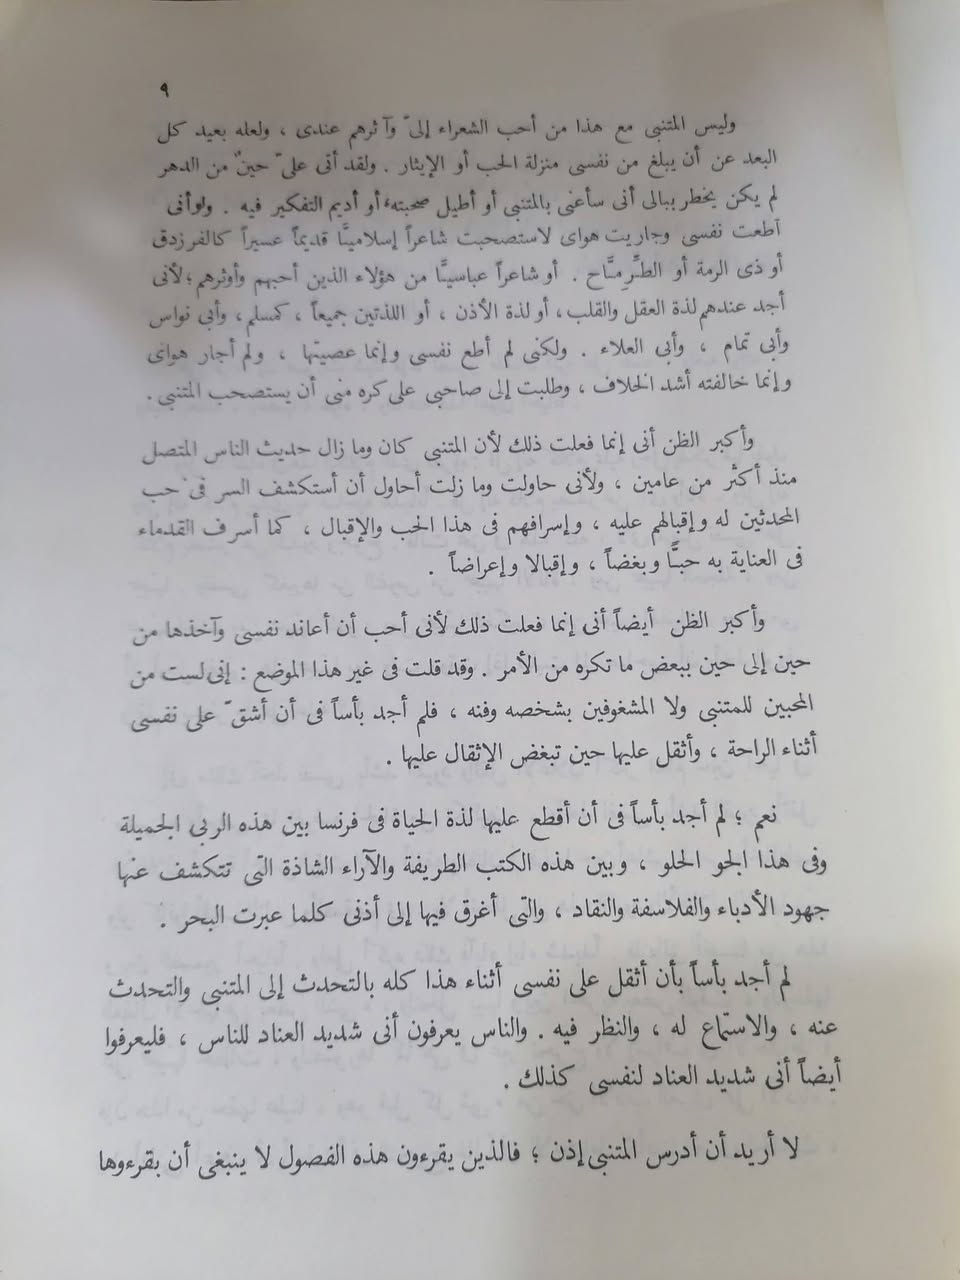 ٩
وليس المتنبى مع هذا من أحب الشعراء إلىّ وآثرهم عندى ، ولعله بعيد كل
البعد عن أن يبلغ من نفسى منزلة الحب أو الإيثار . ولقد أتى علىّ حينٌ من الدهر
لم يكن يخطر ببالى أنى سأعنى بالمتنبى أو أطيل صحبته، أو أديم التفكير فيه . ولو أنى
أطعت نفسى وجاريت هواى لاستصحبت شاعراً إسلاميًّا قديماً عسيراً كالفرزدق
أو ذى الرمة أو الطِّرِمَّاح . أو شاعراً عباسيًّا من هؤلاء الذين أحبهم وأوثرهم ؛ لأنى
أجد عندهم لذة العقل والقلب ، أو لذة الأذن ، أو اللذتين جميعاً ، كمسلم ، وأبى نواس
وأبى تمام ، وأبى العلاء . ولكنى لم أطع نفسى وإنما عصيتها ، ولم أجار هواى
وإنما خالفته أشد الخلاف ، وطلبت إلى صاحبى على كره منى أن يستصحب المتنبى .
وأكبر الظن أنى إنما فعلت ذلك لأن المتنبى كان وما زال حديث الناس المتصل
منذ أكثر من عامين ، ولأنى حاولت وما زلت أحاول أن أستكشف السر فى حب
المحدثين له وإقبالهم عليه ، وإسرافهم فى هذا الحب والإقبال ، كما أسرف القدماء
فى العناية به حبًّا وبغضاً ، وإقبالا وإعراضاً .
وأكبر الظن أيضاً أنى إنما فعلت ذلك لأنى أحب أن أعاند نفسى وآخذها من
حين إلى حين ببعض ما تكره من الأمر . وقد قلت فى غير هذا الموضع : إنى لست من
المحبين للمتنبى ولا المشغوفين بشخصه وفنه ، فلم أجد بأساً فى أن أشقّ على نفسى
أثناء الراحة ، وأثقل عليها حين تبغض الإثقال عليها .
نعم ؛ لم أجد بأساً فى أن أقطع عليها لذة الحياة فى فرنسا بين هذه الربى الجميلة
وفى هذا الجو الحلو ، وبين هذه الكتب الطريفة والآراء الشاذة التى تتكشف عنها
جهود الأدباء والفلاسفة والنقاد ، والتى أغرق فيها إلى أذنى كلما عبرت البحر .
لم أجد بأساً بأن أثقل على نفسى أثناء هذا كله بالتحدث إلى المتنبى والتحدث
عنه ، والاستماع له ، والنظر فيه . والناس يعرفون أنى شديد العناد للناس ، فليعرفوا
أيضاً أنى شديد العناد لنفسى كذلك .
لا أريد أن أدرس المتنبى إذن ؛ فالذين يقرءون هذه الفصول لا ينبغى أن يقرءوها